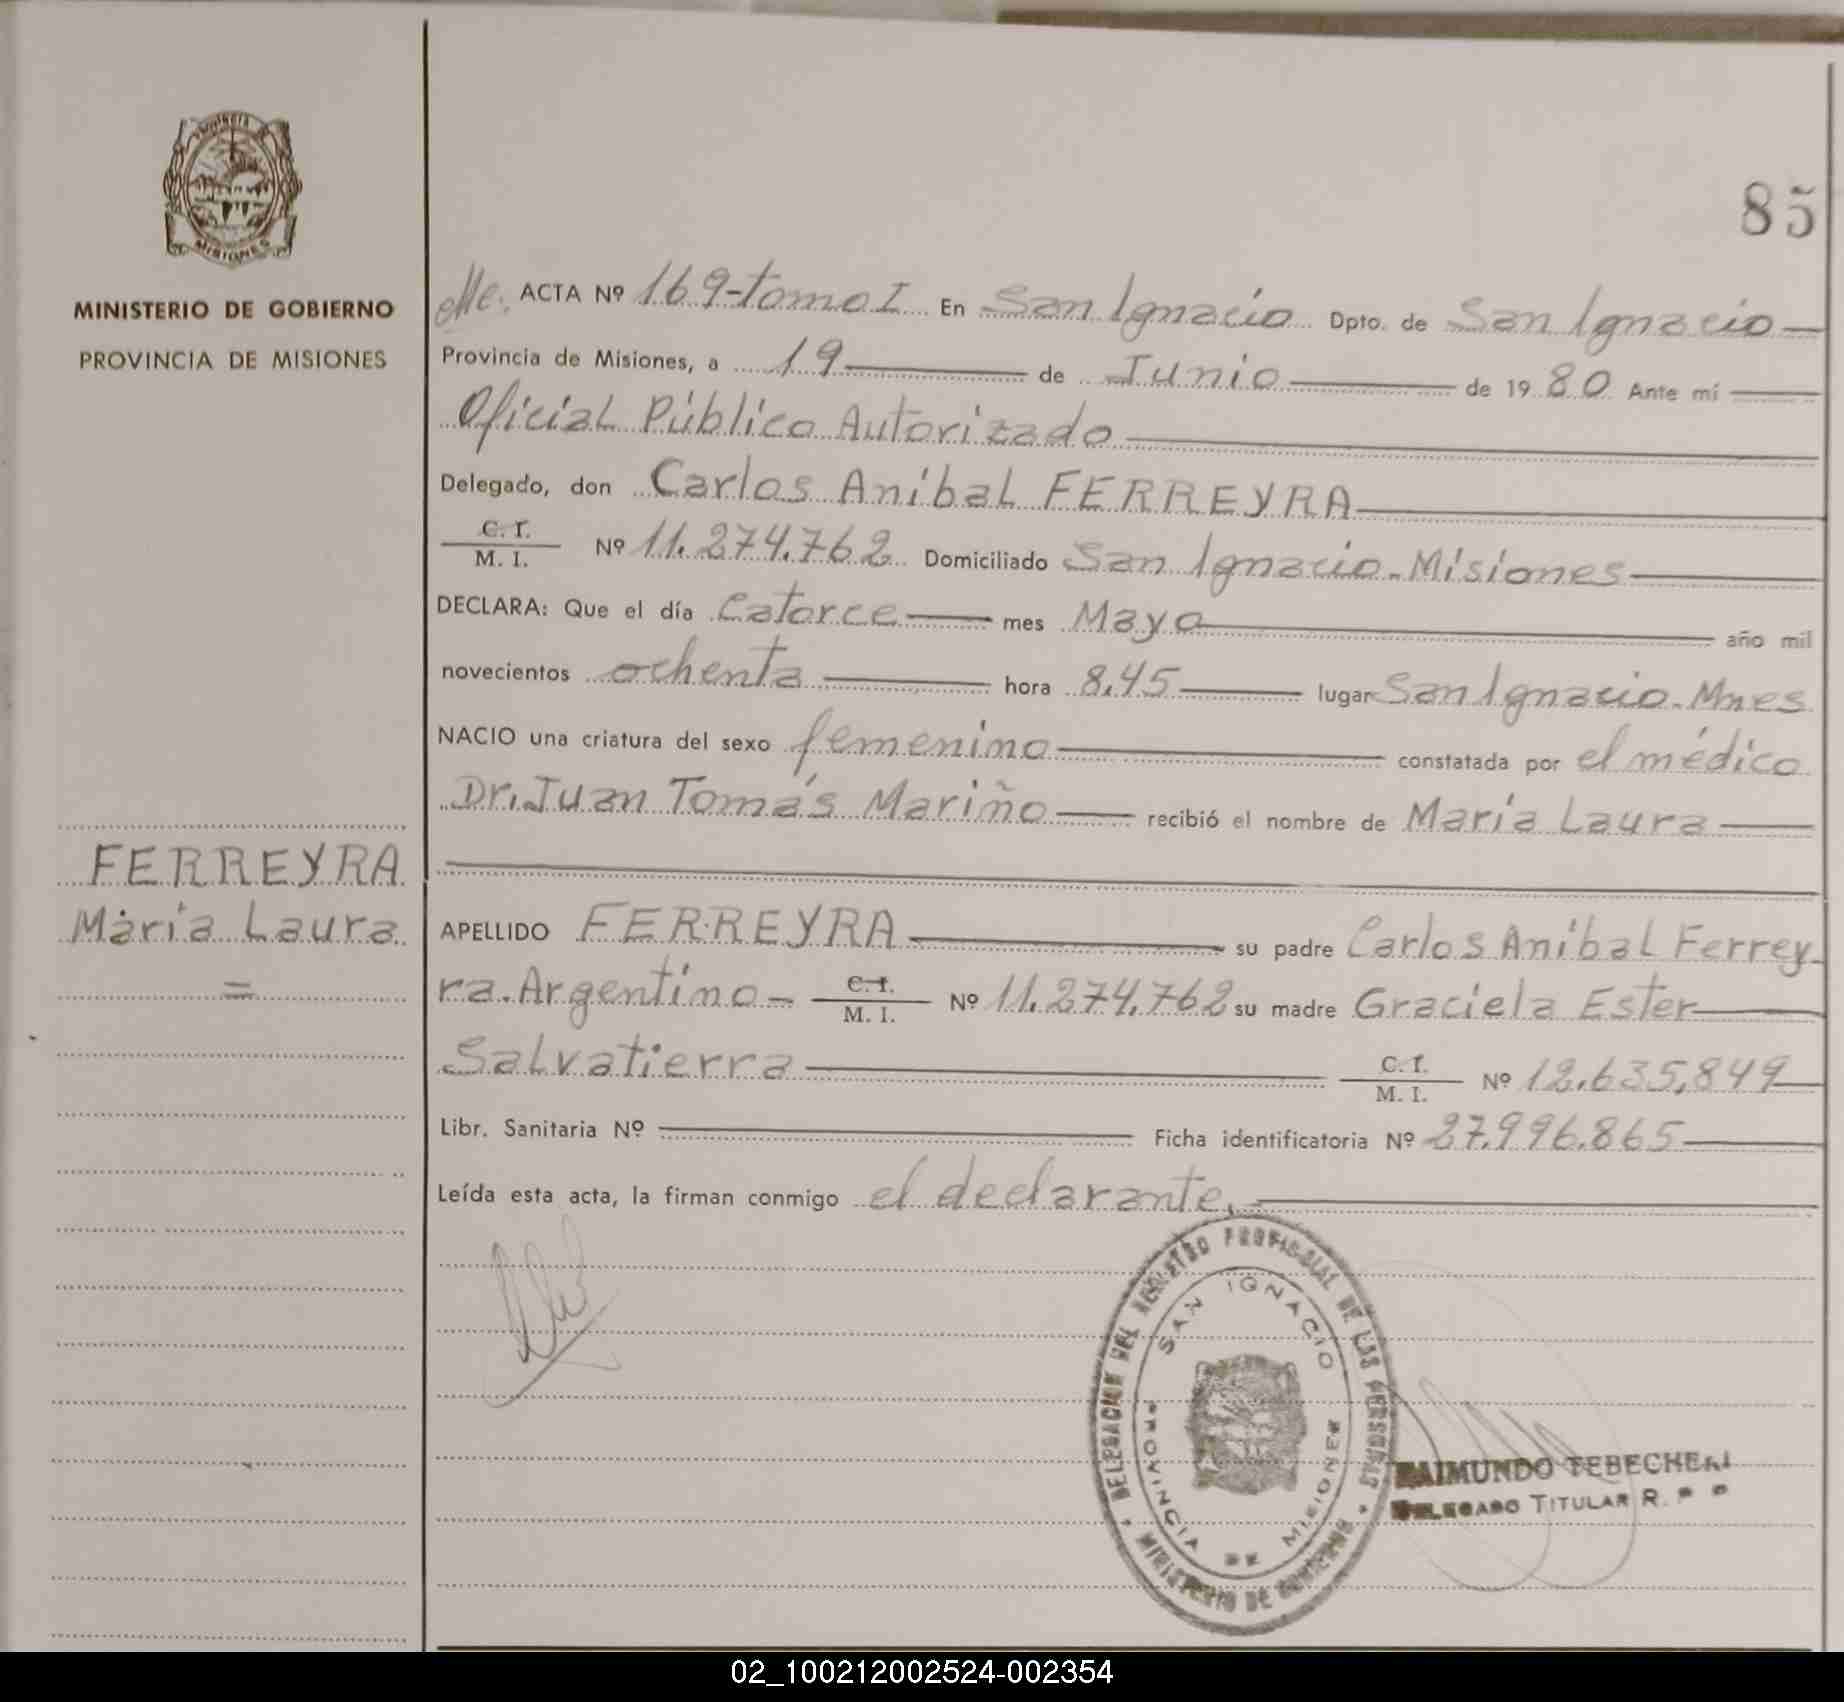 PROVINCIA DE
MISIONES
MINISTERIO DE GOBIERNO
PROVINCIA DE MISIONES
FERREYRA
María Laura
=
85
ACTA Nº 169-tomo I En San Ignacio Dpto. de San Ignacio
Provincia de Misiones, a 19 de Junio de 1980 Ante mí
Oficial Público Autorizado
Delegado, don Carlos Aníbal FERREYRA
C. I.
M. I. Nº 11.274.762 Domiciliado San Ignacio-Misiones
DECLARA: Que el día Catorce mes Mayo año mil
novecientos ochenta hora 8,45 lugar San Ignacio-Mnes
NACIO una criatura del sexo femenino constatada por el médico
Dr. Juan Tomás Mariño recibió el nombre de María Laura
APELLIDO FERREYRA su padre Carlos Aníbal Ferrey-
ra. Argentino- C. I. M. I. Nº 11.274.762 su madre Graciela Ester
Salvatierra C. I. M. I. Nº 12.635.849
Libr. Sanitaria Nº Ficha identificatoria Nº 27.996.865
Leída esta acta, la firman conmigo el declarante.
DELEGACION DEL REGISTRO PROVINCIAL DE LAS PERSONAS
SAN IGNACIO
PROVINCIA DE MISIONES
MINISTERIO DE GOBIERNO
RAIMUNDO
DELEGADO TITULAR R. P. P.
02_100212002524-002354